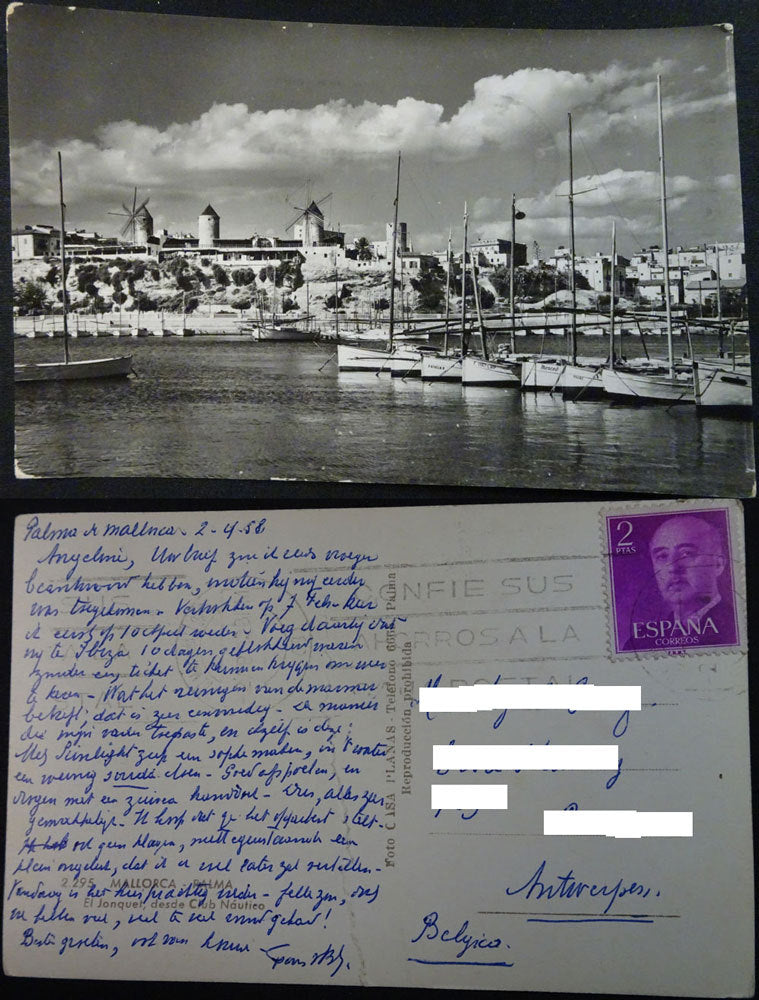 Palma de Mallorca - 2-4-58
Angeline, Uw brief zou ik eens vroeger
beantwoord hebben, moest hij mij eerder
- Vertrokken op 7 Febr. keer
ik eerst op 10 April weder - Voeg daarbij dat
wij te Ibiza 10 dagen geblokkeerd waren
zonder een ticket te kunnen krijgen om weer
te keren - Wat het reinigen van de marmer
betreft, dat is zeer eenvoudig - de manier
die mijn vader toepaste, en ikzelf is deze:
Met Sunlight zeep een sopje maken, in 't water
een weinig souda doen - Goed afspoelen, en
drogen met een zuivere handdoek - Dus, alles zeer
gemakkelijk - Ik hoop dat ge het opknbent
ook geen klagen, niettegenstaande een
klein ongeluk, dat ik u wel later zal vertellen -
Vandaag is het hier prachtig weder - felle zon, doch
we hebben veel, veel te veel wind gehad!
Beste groeten, ook van
2.295 MALLORCA - PALMA
El Jonquet, desde Club Náutico
Foto CASA PLANAS - Teléfono Palma
Reproducción prohibida
CONFIE SUS
AHORROS A LA
POSTAL
2
PTAS
ESPAÑA
CORREOS
Antwerpen.
Belgica.